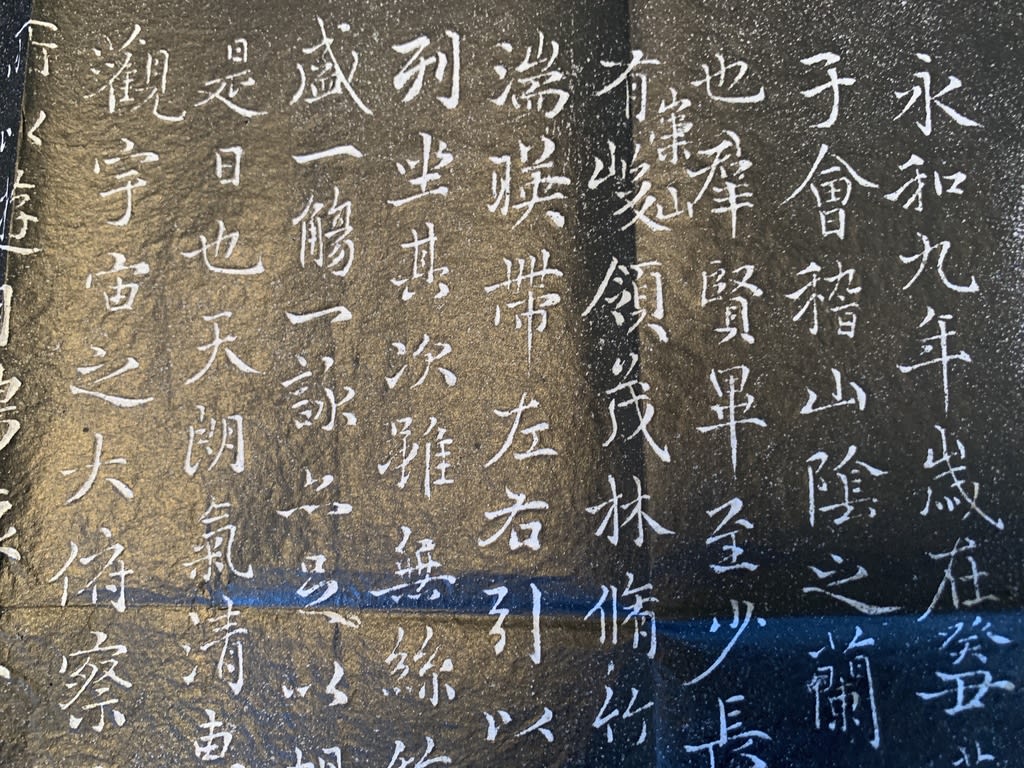 永和九年歲在癸丑
于會稽山陰之蘭
也羣賢畢至少長
有崇山峻領茂林脩竹
湍暎帶左右引以
列坐其次雖無絲竹
盛一觴一詠亦足以
是日也天朗氣清惠
觀宇宙之大俯察
所以遊目騁